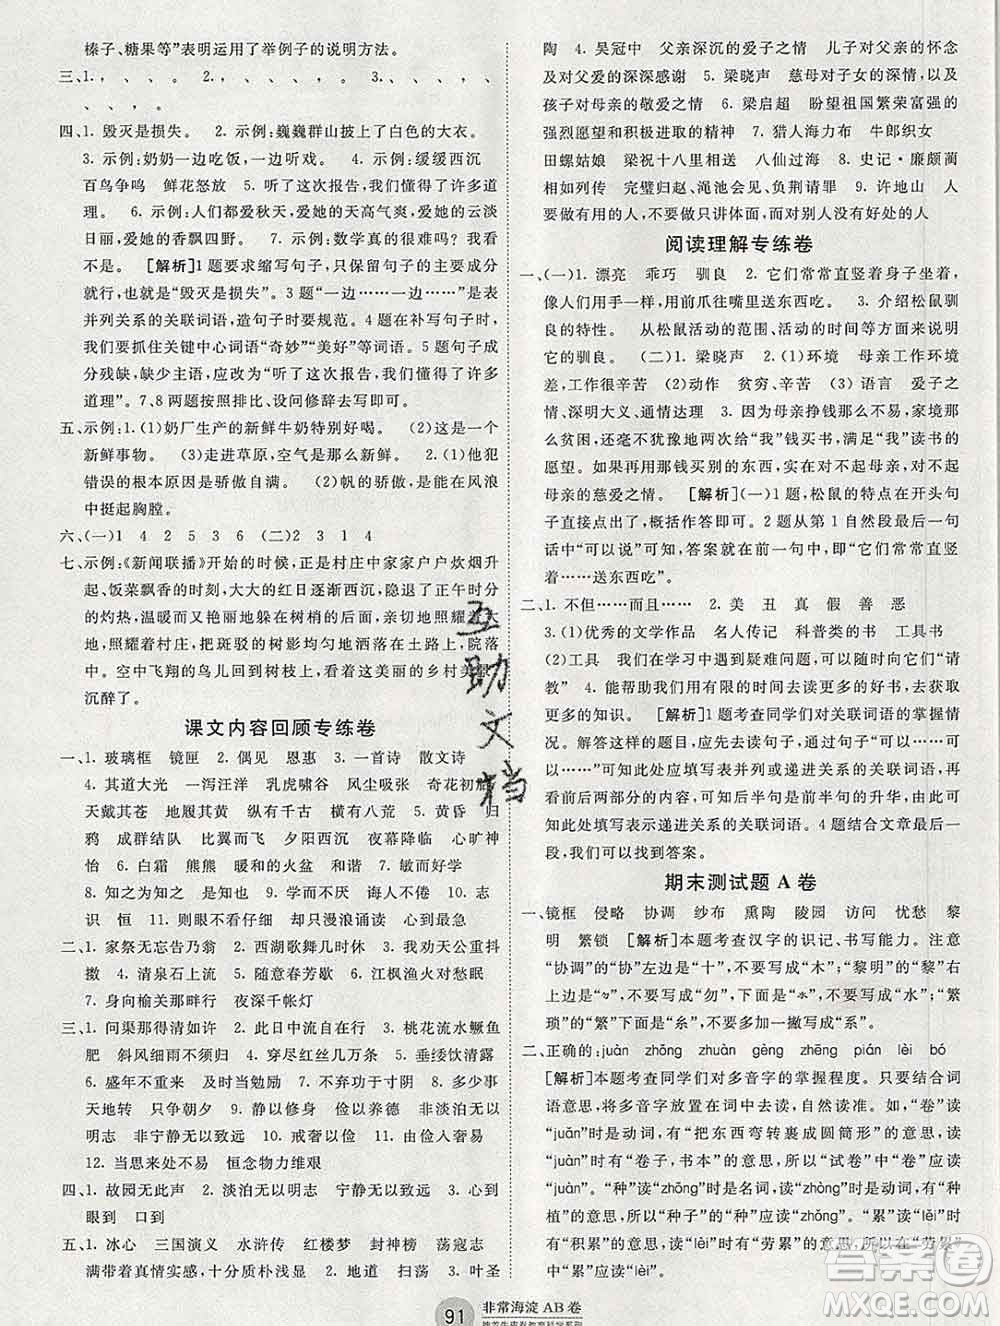 榛子、糖果等”表明运用了举例子的说明方法。
三、1.，、。、。 2.，、，、。 3.、，、，、，
、、，、。
四、1. 毁灭是损失。 2. 示例:巍巍群山披上了白色的大衣。
3. 示例:奶奶一边吃饭,一边说话。 4. 示例:缓缓西沉
百鸟争鸣 鲜花怒放 5. 听了这次报告,我懂得了许多道
理。 6. 示例:人们都爱秋天,爱她的天高气爽,爱她的云淡
日丽,爱她的香飘四野。 7. 示例:数学真的很难吗?我看
不是。 [解析]1题要求缩写句子,只保留句子的主要成分
就行,即“毁灭是损失”。3题“一边……一边……”是表
并列关系的关联词语,造句子时要注意。4题在补写句子时,
我们要抓住关键中心词语“奇妙”“美好”等词语。5题句子成
分残缺,缺少主语,应改为“听了这次报告,我懂得了许多
道理”。7、8两题按照排比、设问修辞去写即可。
五、示例:1.(1)奶厂生产的新鲜牛奶特别好喝。 (2)这是一个
新鲜事物。 (3)走进草原,空气是那么新鲜。 2.(1)他犯
错误的根本原因是骄傲自满。 (2)帆的骄傲,是在风浪
中挺起胸膛。
六、(一)1 4 2 5 3 6 (二)2 3 1 4
七、示例:《新闻联播》开始的时候,正是村庄中家家户户炊烟升
起、饭菜飘香的时刻,大大的红日逐渐西沉,隐退了正午时分
的灼热,温暖而又美丽地躲在树梢的后面,亲切地照耀着大
地,照耀着村庄,斑驳的树影刚刚巧巧地洒落在土路上,院落
中。空中飞翔的鸟儿回到树枝上,看着这美丽的乡村美景
沉醉了。
课文内容回顾专练卷
一、1. 玻璃框 镜匣 2. 偶见 恩惠 3. 一首诗 散文诗
4. 其道大光 一泻汪洋 乳虎啸谷 风尘吸张 奇花初胎
戴天其苍 地履其黄 纵有千古 横有八荒 5. 黄昏 归
鸦 成群结队 翩翩而飞 夕阳西沉 夜幕降临 心旷神
怡 6. 白霜 熊熊 暖和的火盆 和谐 7. 敏而好学
8. 知之为知之 学而不厌 诲人不倦 9. 心 眼 口 10. 志
识 恒 11. 则眼不看仔细 却只漫浪诵读 心到最急
二、1. 家祭无忘告乃翁 2. 西湖歌舞几时休 3. 我劝天公重抖
擞 4. 清泉石上流 5. 随意春芳歇 6. 江枫渔火对愁眠
7. 身向榆关那畔行 夜深千帐灯
三、1. 问渠那得清如许 2. 此日中流自在行 3. 桃花流水鳜鱼
肥 4. 为谁辛苦为谁甜 5. 垂緌饮清露
6. 盛年不重来 及时当勉励 7. 不弃功于寸阴 8. 莫等闲
9. 静以修身 俭以养德 非淡泊无以
明志 非宁静无以致远 10. 戒奢以俭 11. 由俭入奢易
12. 当思来处不易 恒念物力维艰
四、1. 故园无此声 2. 淡泊以明志 宁静以致远 3. 心到
眼到 口到
五、1. 冰心 三国演义 水浒传 红楼梦 封神榜 荡寇志
满带着真情实感,十分质朴浅显 2. 地道 扫荡 3. 叶圣
陶 4. 吴冠中 父亲深沉的爱子之情 儿子对父亲的怀念
及对父爱的深深感谢 5. 梁晓声 慈母对子女的深情,以及
孩子对母亲的敬爱之情 6. 梁启超 盼望祖国繁荣富强的
强烈愿望和积极进取的精神 7. 猎人海力布 牛郎织女
田螺姑娘 梁祝十八里相送 八仙过海 8. 史记·廉颇蔺
相如列传 完璧归赵、渑池会见、负荆请罪 9. 许地山 人
要做有用的人,不要做只讲体面,而对别人没有好处的人
阅读理解专练卷
一、(一)1. 漂亮 乖巧 驯良 2. 它们常常直竖着身子坐着,
像人们用手一样,用前爪往嘴里送东西吃。 3. 介绍松鼠驯
良的特性。 从松鼠活动的范围、活动的时间等方面来说明
它的驯良。 (二)1. 梁晓声 2.(1)环境 母亲工作环境
差,工作很辛苦 (2)动作 贫穷、辛苦 (3)语言 爱子之
情,深明大义、通情达理 3. 因为母亲挣钱那么不易,家境那
么贫困,还毫不犹豫地两次给“我”钱买书,来满足“我”读书的
愿望。如果用钱买别的东西,实在对不起母亲,对不起
母亲的慈爱之情。 [解析](一)1题,松鼠的特点在开头句
子直接点出,按要求作答即可。2题从第1自然段最后一句
话中“可以说”可知,答案就在前一句中,即“它们常常直竖
着……送东西吃”。
二、1. 不但……而且…… 2. 美 丑 真 假 善 恶
3.(1)优秀的文学作品 名人传记 科普类的书 工具书
(2)工具 我们在学习中遇到疑难问题,可随时向它们“请
教” 4. 能帮助我们选择更多更适合的好书,来使我们获得
更多的知识。 [解析]1题考查同学们对关联词语的掌握情
况。解答这类题,要先读句子,通过“可以……可以……
可以……”可知此处应填写表并列或递进关系的关联词语,
而从句意来看,后半句是前半句的升华,由此可知
可知此处填写表示递进关系的关联词语。4题结合文章最后一段,
我们可以找到答案。
期末测试题 A 卷
一、镜框 侵略 协调 纱布 熏陶 陵园 访问 忧愁 黎
明 繁锁 [解析]本题考查汉字的识记、书写能力。注意
“协调”的“协”左边是“十”,不要写成“木”;“黎明”的“黎”右
上边是“勹”,不要写成“勿”,下面是“氺”,不要写成“水”;“繁
琐”的“繁”下面是“糸”,不要多加一撇写成“系”。
二、正确的:juàn zhōng zhuàn gèng zhēng pián lèi bó
[解析]本题考查同学们对多音字的掌握程度。只要结合词
语意思,将多音字放置在词语中去理解即可。如,“卷”读
“juǎn”时有“把东西弯转裹成圆筒形”的意思,读
“juàn”时有“卷子,书本”的意思,所以“试卷”中“卷”应读
“juàn”。“种”读“zhǒng”时是名词,读“zhòng”时有“种
植”的意思,所以“种子”的“种”应读“zhǒng”。“累”读“lěi”时
有“积累”的意思,读“lèi”时有“劳累”的意思,所以“劳累”
中“累”应该读“lèi”。
互助文档
91
非常海淀 AB 卷
答案圈
MXQE.COM